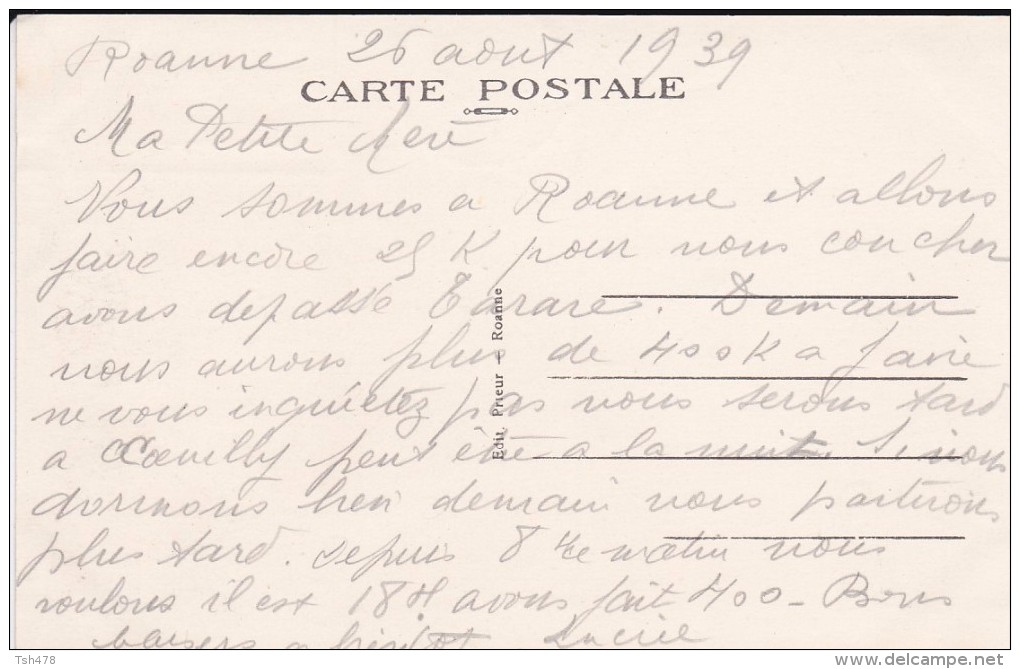 Roanne 26 aout 1939
CARTE POSTALE
Ma Petite Mere
Nous sommes a Roanne et allons
faire encore 25 K pour nous coucher
avons depassé Tarare. Demain
nous aurons plus de 400 K a faire
ne vous inquietez pas nous serons tard
a Coeuilly peut etre a la nuit. Si nous
dormons bien demain nous partirons
plus tard. depuis 8 du matin nous
roulons il est 18H avons fait 400 - Bons
baisers a bientot Lucile
Edit. Prieur - Roanne
Tsh478
delcampe.net